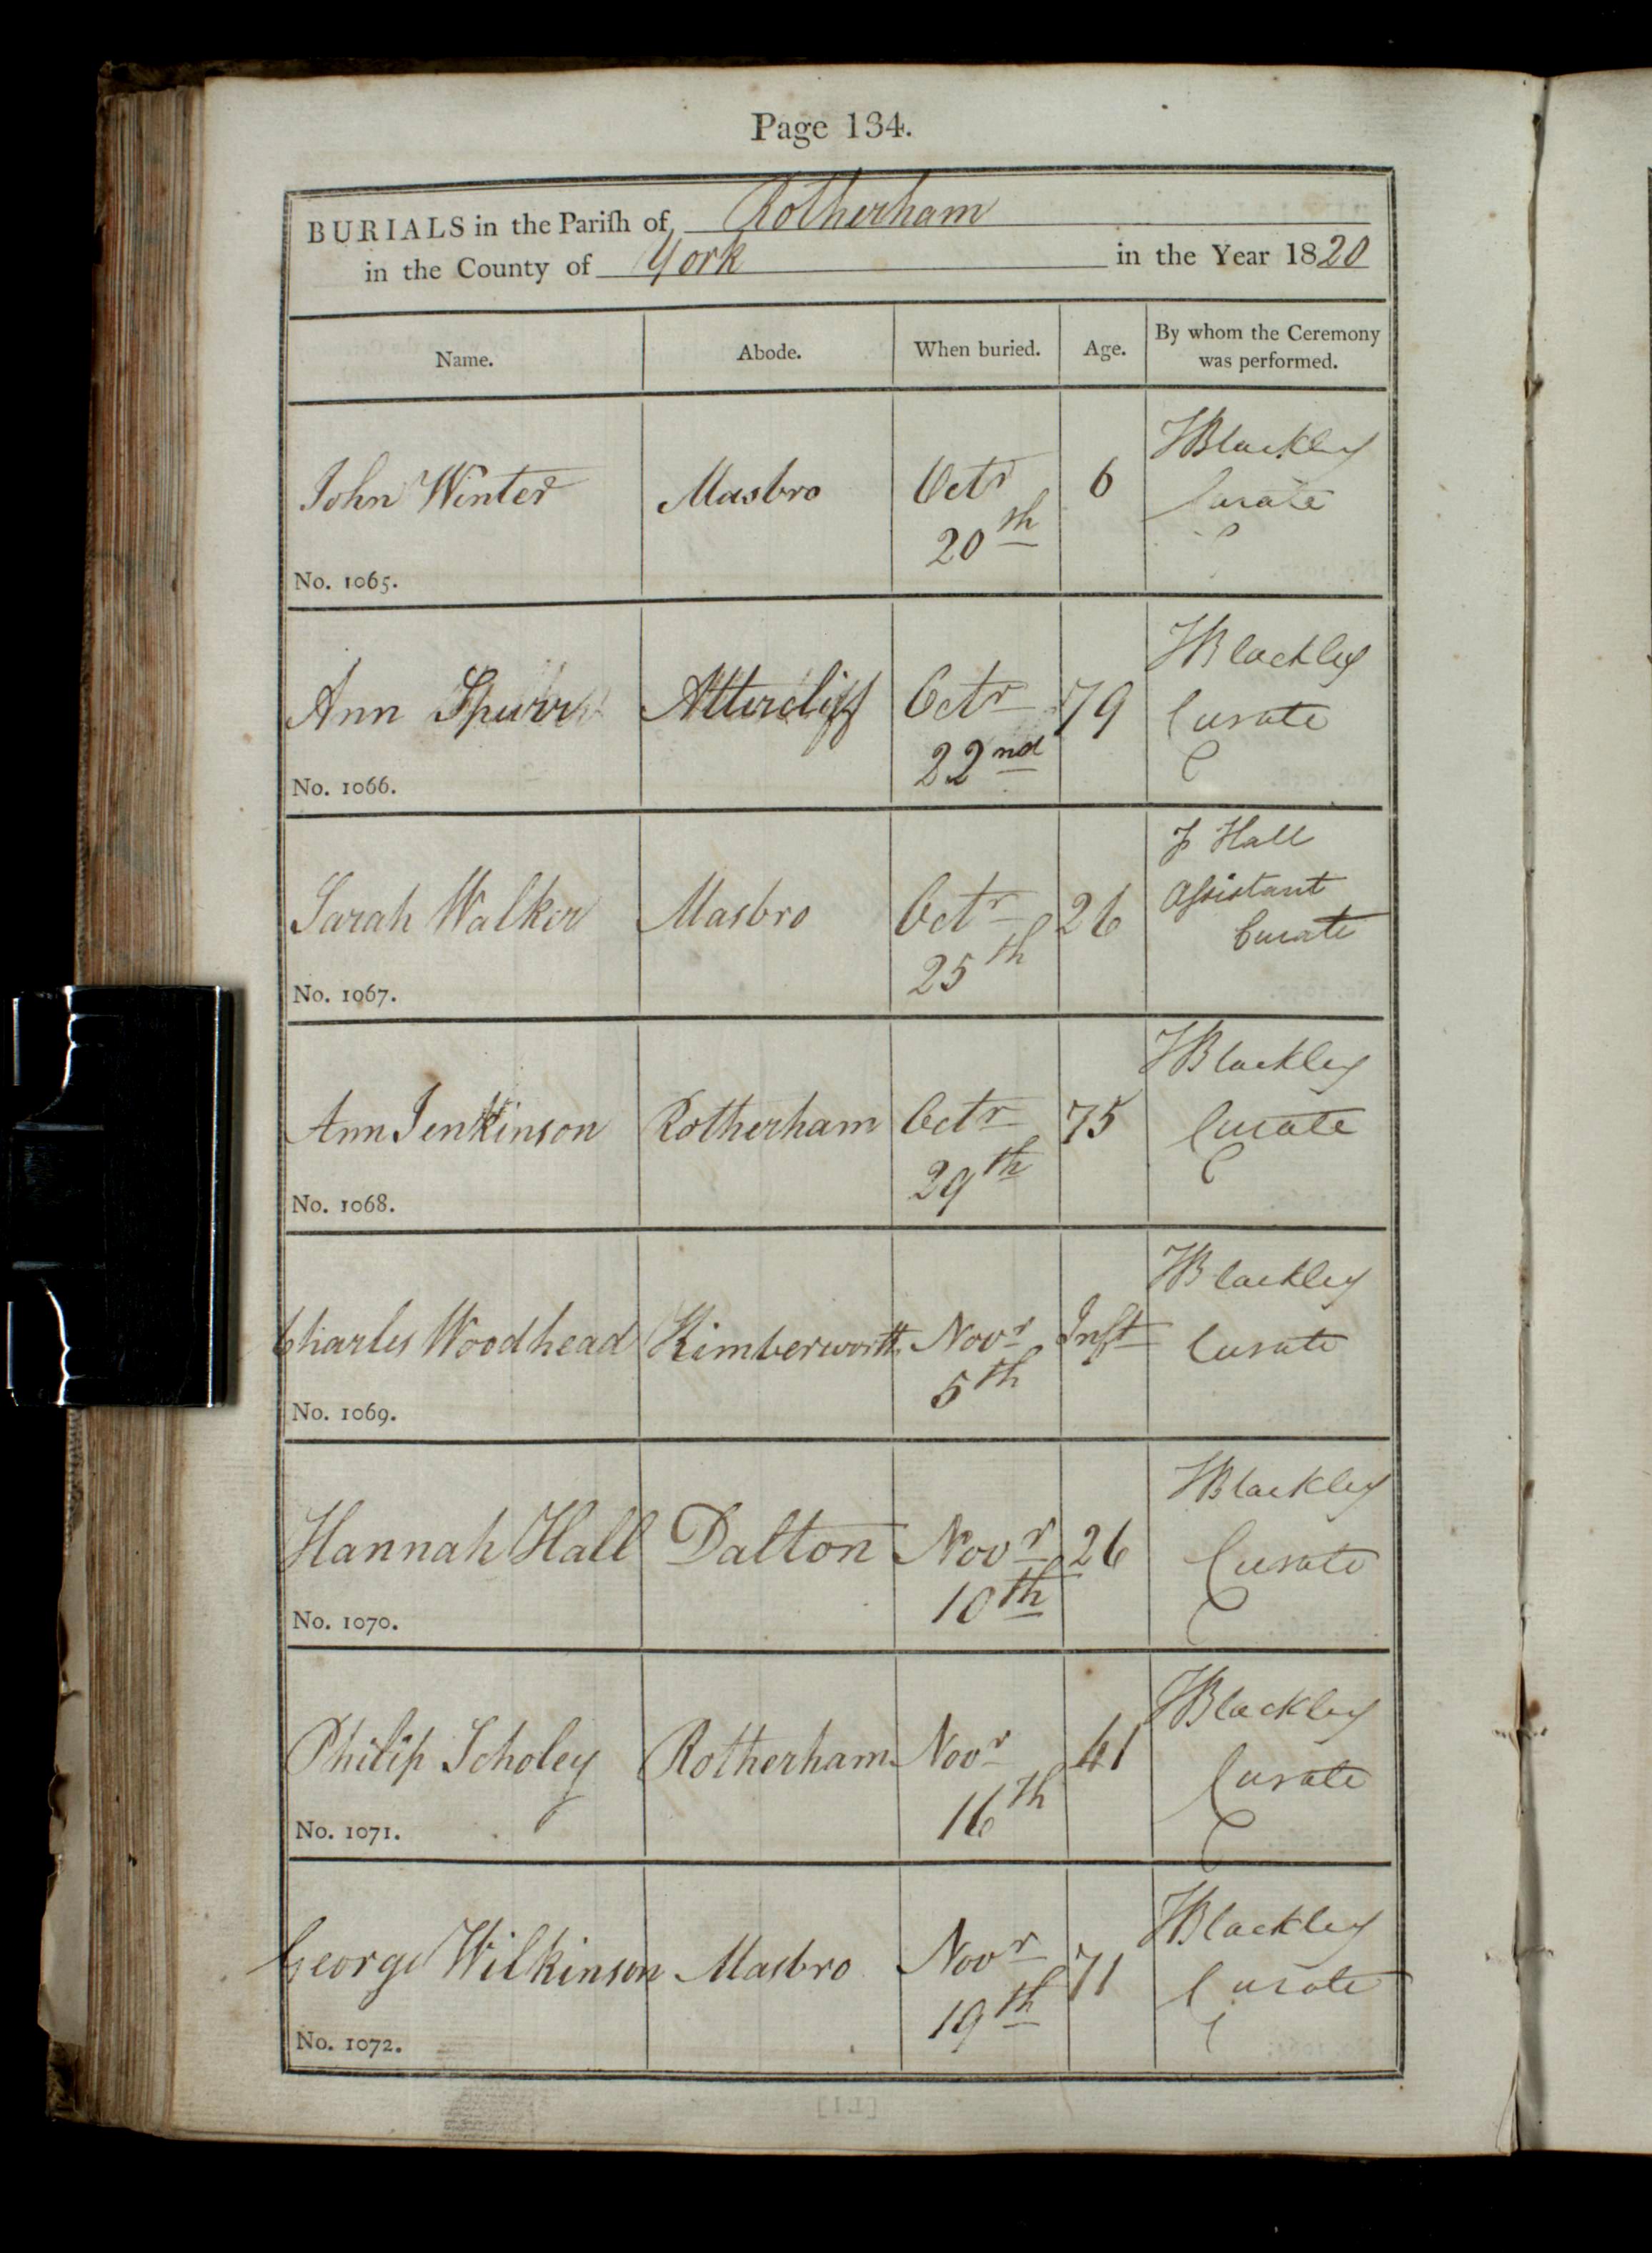 Page 134.
BURIALS in the Pariſh of Rotherham
in the County of York in the Year 1820
Name. Abode. When buried. Age. By whom the Ceremony
was performed.
John Winter Masbro Octr 6 Blackley
20th Curate
No. 1065.
Ann Spurr Attercliff Octr 79 Blackley
22nd Curate
No. 1066.
Sarah Walker Masbro Octr 26 Hall
25th Aſsistant
Curate
No. 1067.
Ann Jenkinson Rotherham Octr 75 Blackley
29th Curate
No. 1068.
Charles Woodhead Kimberworth Novr Inft Blackley
5th Curate
No. 1069.
Hannah Hall Dalton Novr 26 Blackley
10th Curate
No. 1070.
Philip Scholey Rotherham Novr 41 Blackley
16th Curate
No. 1071.
George Wilkinson Masbro Novr 71 Blackley
19th Curate
No. 1072.